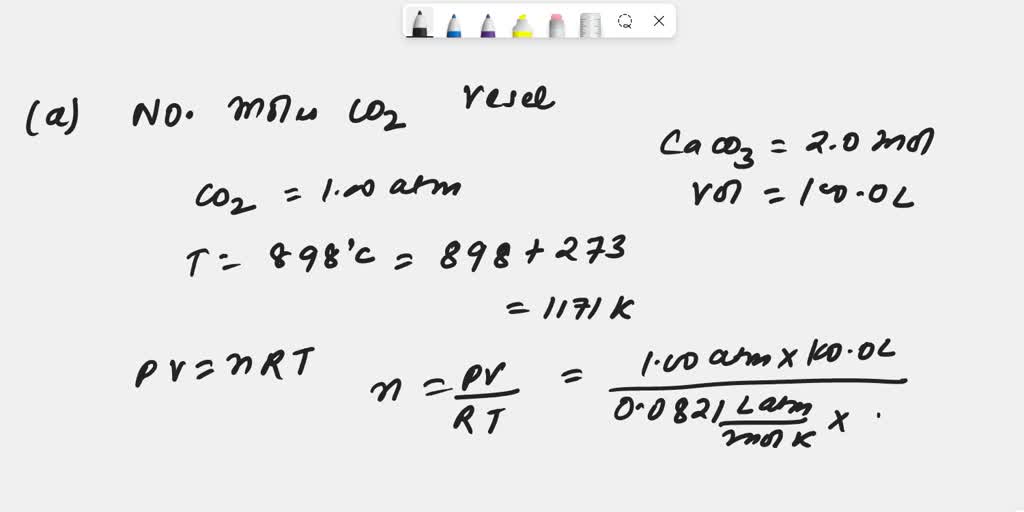 (a) No. moles CO2 vessel
CaCO3 = 2.0 mol
CO2 = 1.00 atm
Vol = 100.0 L
T = 898°C = 898 + 273
= 1171 K
PV = nRT
n = PV/RT = 1.00 atm x 100.0L / 0.0821 L atm/mol K x